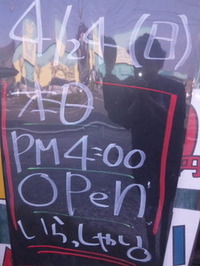 4/24(日)
本日
PM4:00
OPen
いらっしゃい
円